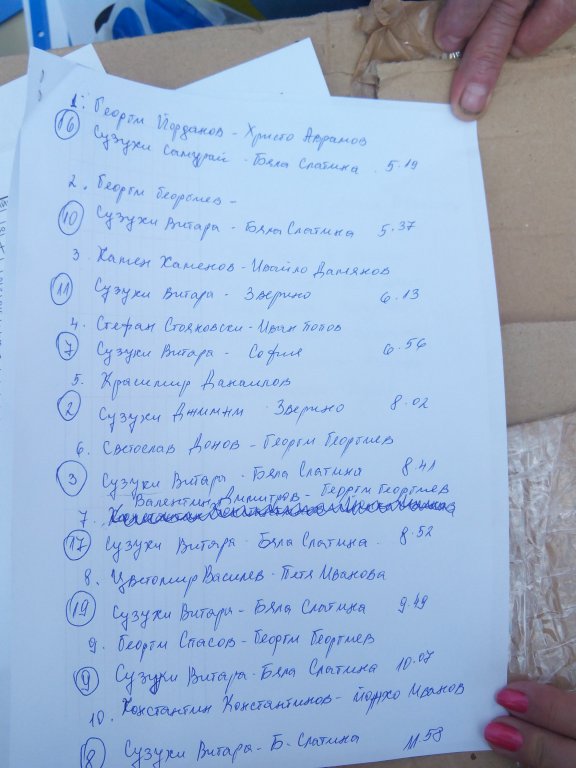 1. Георги Йорданов - Христо Аврамов
16 Сузуки Самурай - Бяла Слатина 5.19
2. Георги Георгиев -
10 Сузуки Витара - Бяла Слатина 5.37
3. Камен Каменов - Ивайло Дамянов
11 Сузуки Витара - Зверино 6.13
4. Стефан Стояновски - Иван Попов
7 Сузуки Витара - София 6.56
5. Красимир Данаилов
2 Сузуки Джимни Зверино 8.02
6. Светослав Донов - Георги Георгиев
3 Сузуки Витара - Бяла Слатина 8.41
Валентин Димитров - Георги Георгиев
7.
17 Сузуки Витара - Бяла Слатина 8.52
8. Цветомир Василев - Петя Иванова
19 Сузуки Витара - Бяла Слатина 9.49
9. Георги Спасов - Георги Георгиев
9 Сузуки Витара - Бяла Слатина 10.07
10. Константин Константинов - Иванов
8 Сузуки Витара - Б. Слатина 11 58